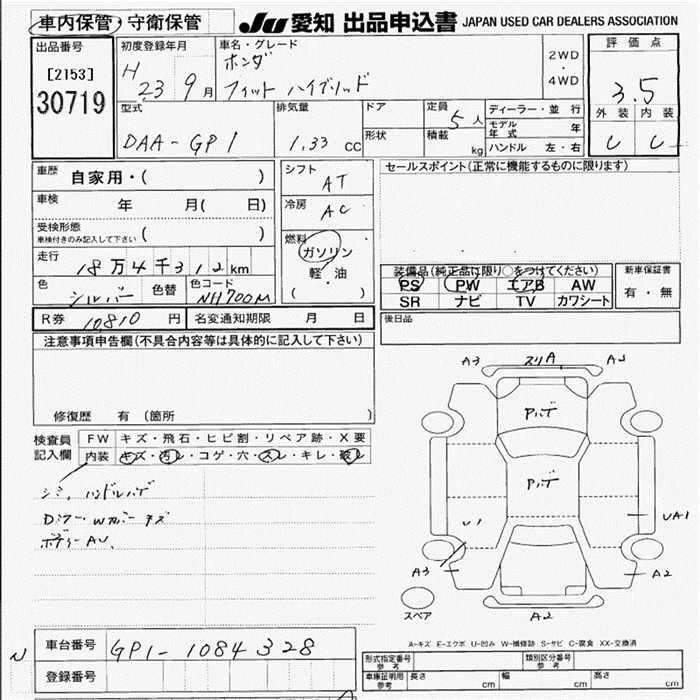 車内保管・守衛保管
JU 愛知 出品申込書 JAPAN USED CAR DEALERS ASSOCIATION
出品番号
[2153]
30719
初度登録年月
H 23 9月
車名・グレード
ホンダ
フィット ハイブリッド
2WD
・
4WD
評価点
3.5
外装 内装
C C
型式
DAA-GP1
排気量
1.33 CC
ドア
形状
定員 5人
積載 kg
ディーラー・並行
モデル年式 年
ハンドル 左・右
車歴 自家用・( )
車検 年 月( 日)
受検形態
車検付きのみ記入して下さい ( )
走行
18万4千312km
色 シルバー 色替 色コード NH700M
シフト
AT
冷房
AC
燃料
ガソリン
軽・油
( )
セールスポイント(正常に機能するものに限ります)
装備品(純正品に限り○をつけてください)
PS PW エアB AW
SR ナビ TV カワシート
新車保証書
有・無
R券 10810円 名変通知期限 月 日
後日品
注意事項申告欄(不具合内容等は具体的に記入して下さい)
修復歴 有 (箇所 )
検査員記入欄
FW キズ・飛石・ヒビ割・リペア跡・X要
内装 キズ・汚レ・コゲ・穴・スレ・キレ・破レ
シミ、ハンドルハゲ
Dミラー Wカバー キズ
ボディーAU、
A3 スリA A3
Pハゲ
Pハゲ
U1 UA1
A3 A2
スペア A2
A-キズ E-エクボ U-凹み W-補修跡 S-サビ C-腐食 XX-交換済
N 車台番号 GP1-1084328
登録番号
形式指定番号 参考 類別区分番号 参考
車庫証明用 参考 長さ cm 幅 cm 高さ cm